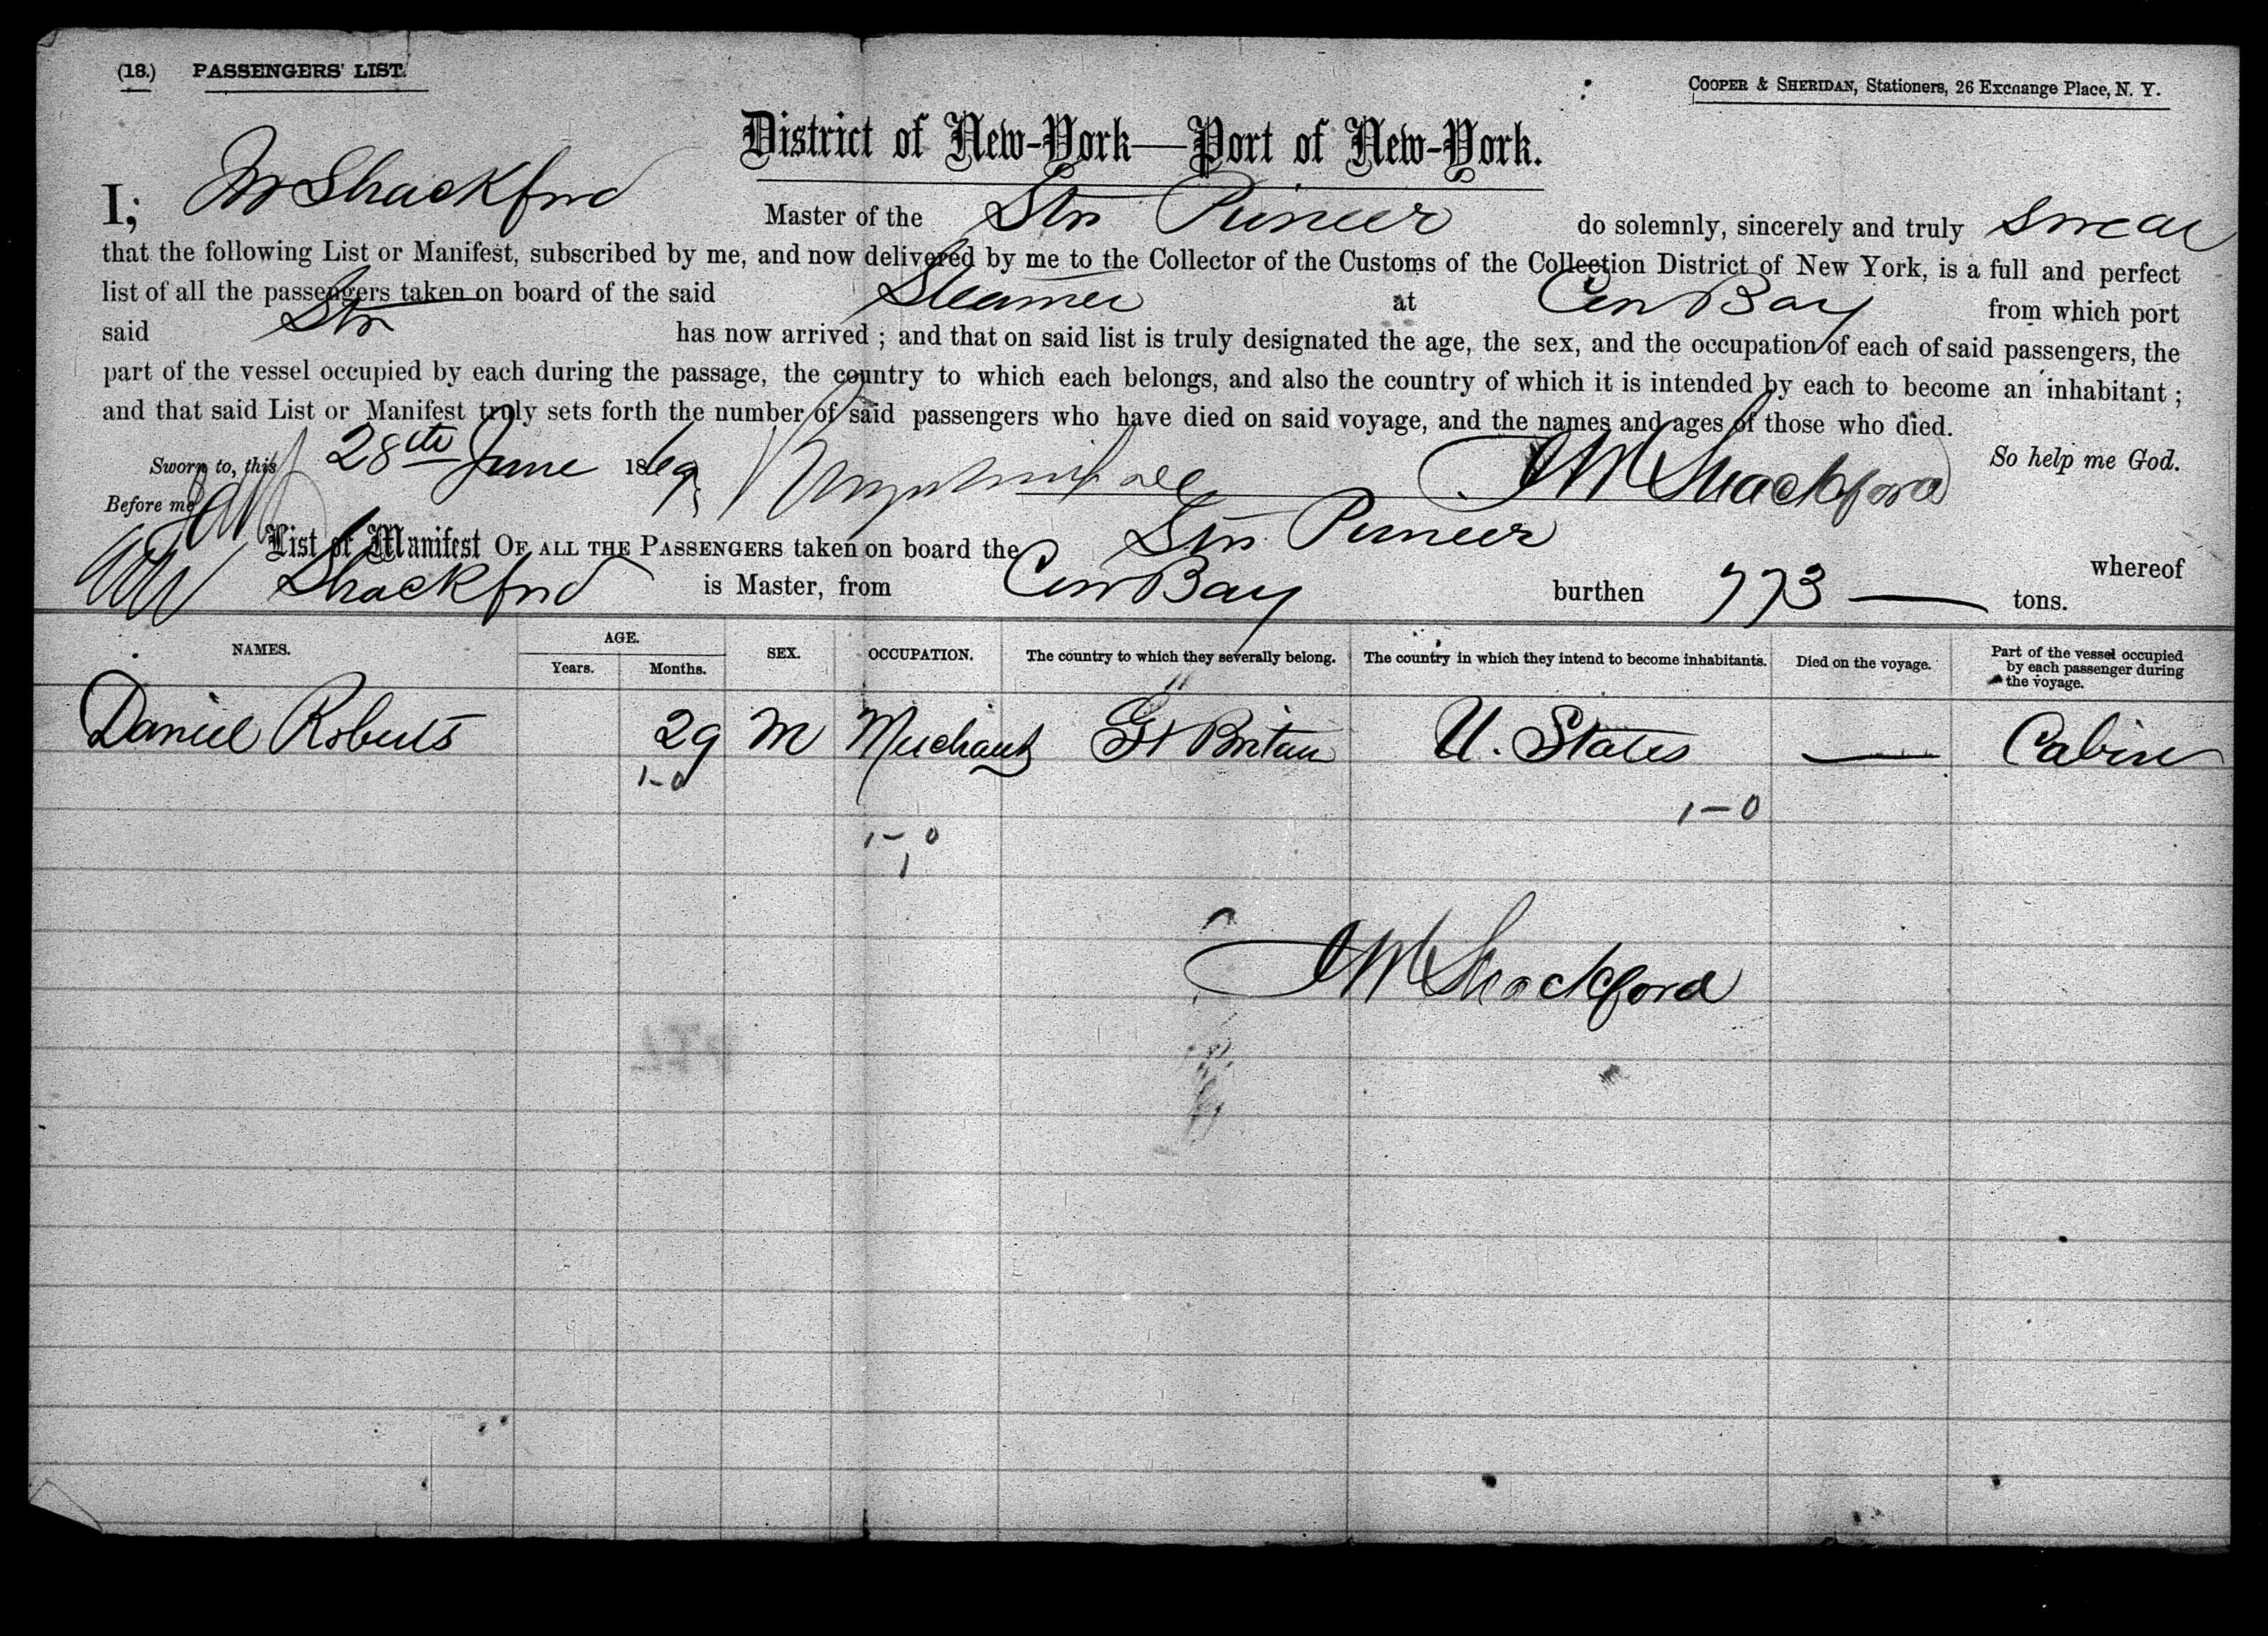 (18.) PASSENGERS' LIST.
COOPER & SHERIDAN, Stationers, 26 Exchange Place, N. Y.
District of New-York—Port of New-York.
I; M Shackford Master of the Str Pioneer do solemnly, sincerely and truly swear
that the following List or Manifest, subscribed by me, and now delivered by me to the Collector of the Customs of the Collection District of New York, is a full and perfect
list of all the passengers taken on board of the said Steamer at Cow Bay from which port
said Str has now arrived ; and that on said list is truly designated the age, the sex, and the occupation of each of said passengers, the
part of the vessel occupied by each during the passage, the country to which each belongs, and also the country of which it is intended by each to become an inhabitant ;
and that said List or Manifest truly sets forth the number of said passengers who have died on said voyage, and the names and ages of those who died.
Sworn to, this 28th June 1869 J M Shackford So help me God.
Before me
List or Manifest OF ALL THE PASSENGERS taken on board the Str Pioneer whereof
Shackford is Master, from Cow Bay burthen 773 — tons.
NAMES. AGE. Years. Months. SEX. OCCUPATION. The country to which they severally belong. The country in which they intend to become inhabitants. Died on the voyage. Part of the vessel occupied by each passenger during the voyage.
Daniel Roberts 29 M Merchant Gt Britain U. States — Cabin
1-0
1-0
1-0
1
J M Shackford